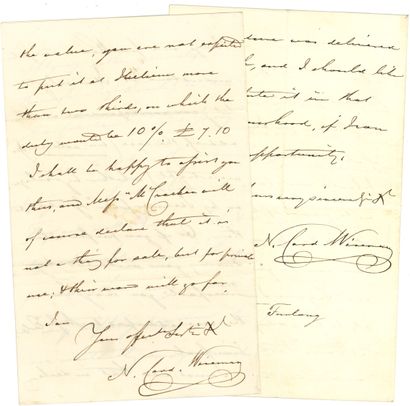 the value, you are not expected
to put it at more
than two thirds, on which the
duty would be 10% £7.10
I shall be happy to assist you
thus, and Messrs McCracken will
of course declare that it is
not a thing for sale, but for private
use; & this will go far.
I am
Your affect.
N. Card. Wiseman
was delivered
and I should like
it in that
if I can
opportunity.
Yours very sincerely
N. Card Wiseman